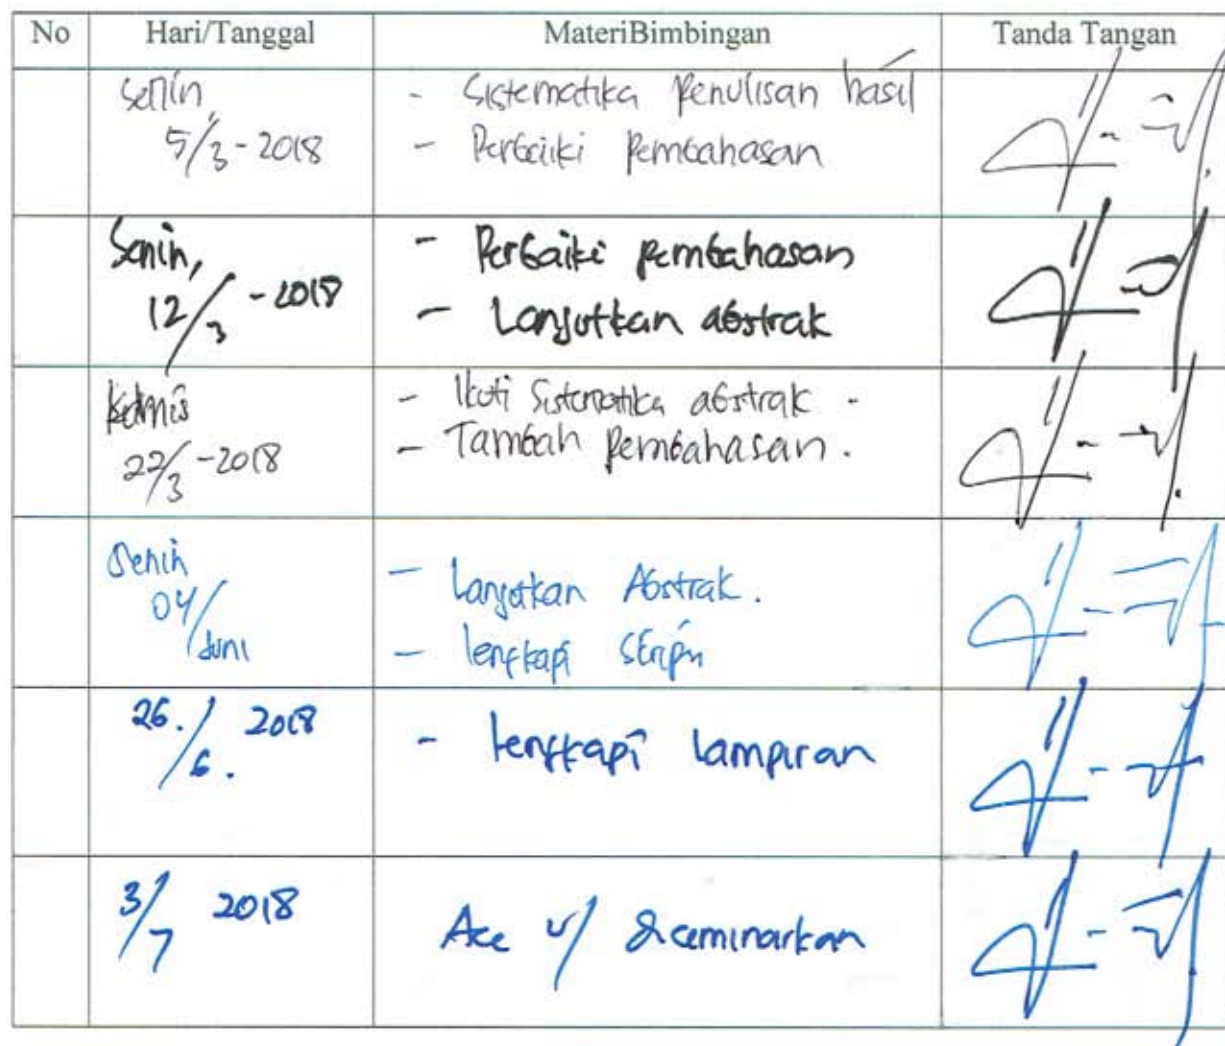 No Hari/Tanggal MateriBimbingan Tanda Tangan
Senin, - Sistematika Penulisan hasil
5/3-2018 - Perbaiki Pembahasan
Senin, - Perbaiki pembahasan
12/3-2018 - Lanjutkan abstrak
Kamis - Ikuti Sistematika abstrak -
22/3-2018 - Tambah Pembahasan.
Senin - Lanjutkan Abstrak.
04/Juni - lengkapi Skripsi
26./6. 2018 - lengkapi lampiran
3/7 2018 Acc u/ diseminarkan